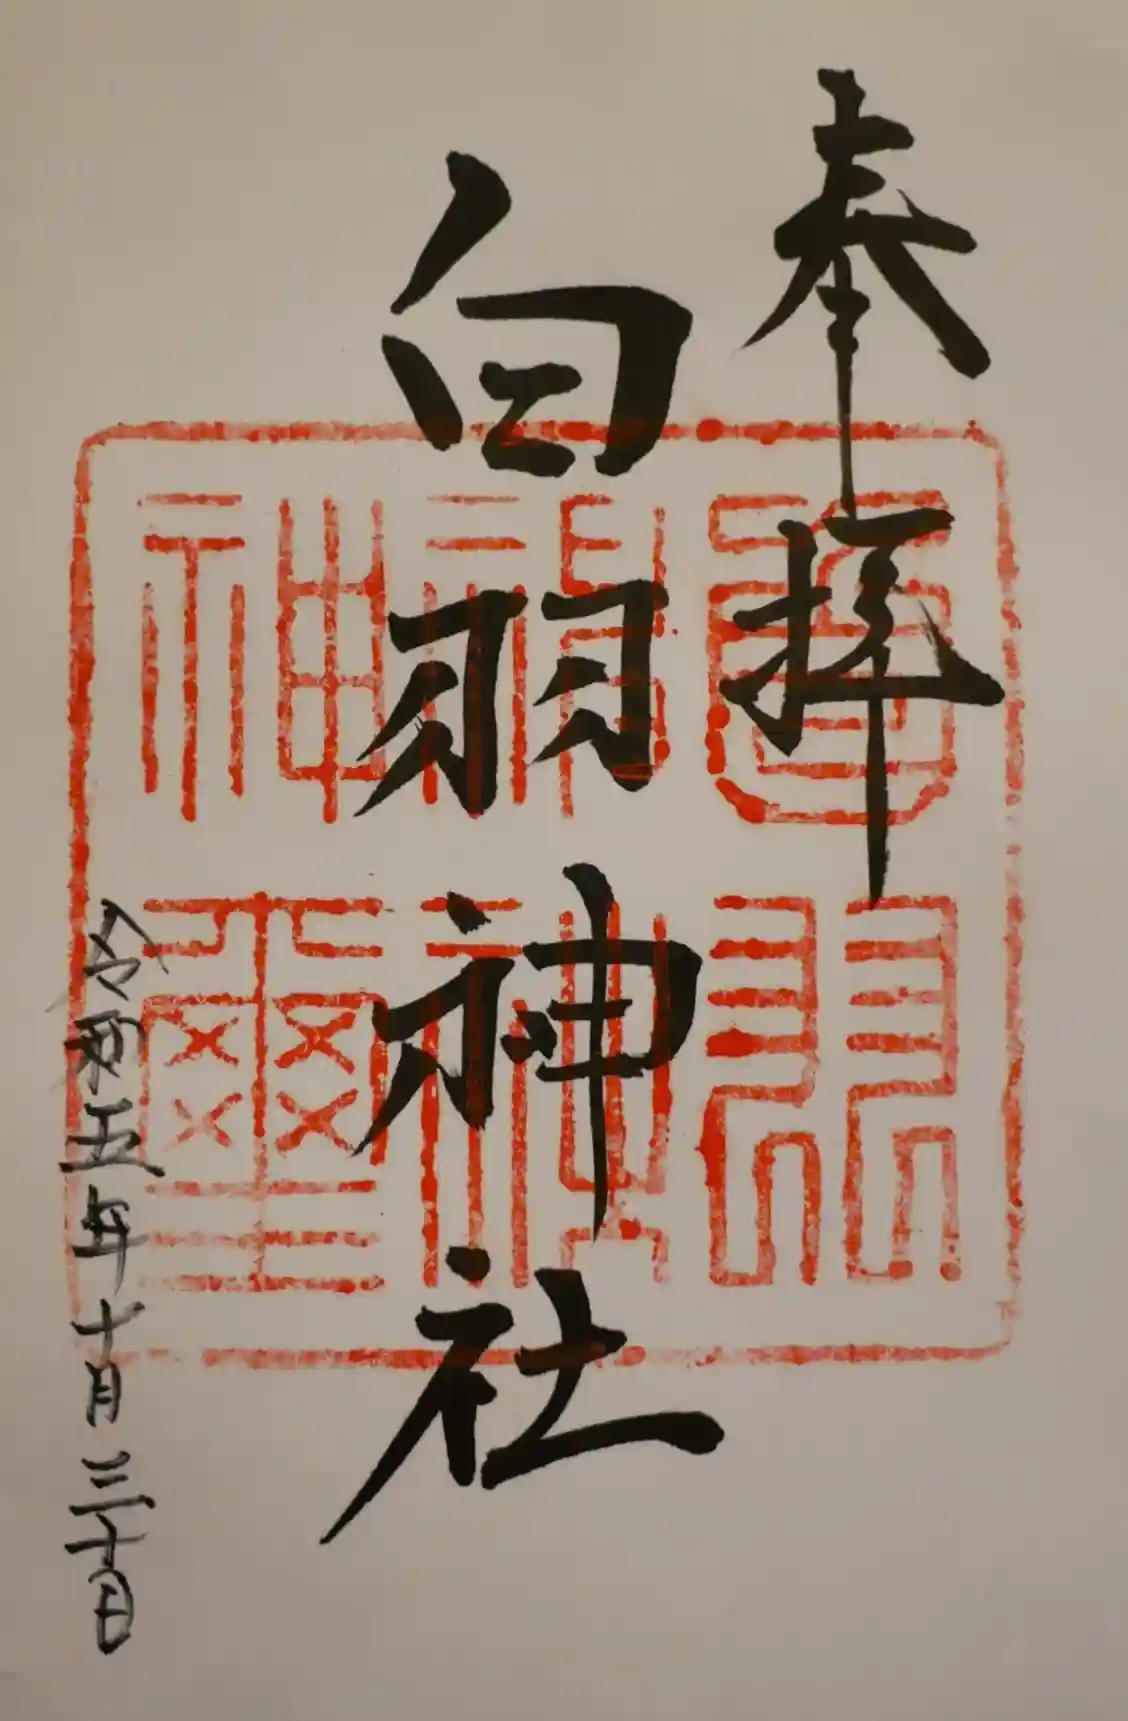 奉拝
白羽神社
令和五年十月三十日
白羽神社神璽